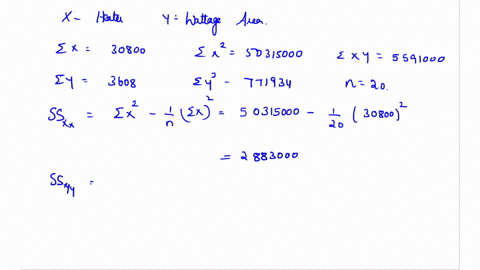 X- Heater Y= Wattage Area.
Σx = 30800 Σx² = 50315000 Σxy = 5591000
Σy = 3608 Σy² - 771934 n=20.
SSxx = Σx² - 1/n (Σx)² = 50315000 - 1/20 (30800)²
= 2883000
SSxy =